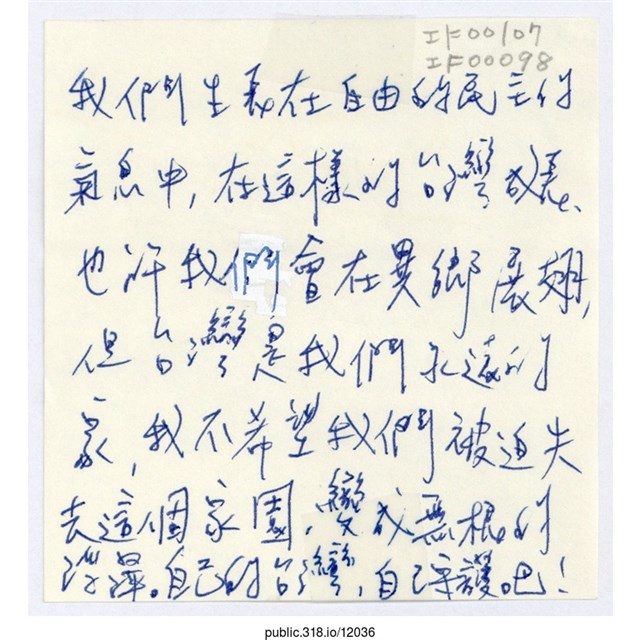 IF00107
IF00098
我們生長在自由的民主的
氣息中,在這樣的台灣成長、
也許我們會在異鄉展翅,
但台灣是我們永遠的
家,我不希望我們被迫失
去這個家園,變成無根的
浮萍。自己的台灣,自己守護吧!
public.318.io/12036